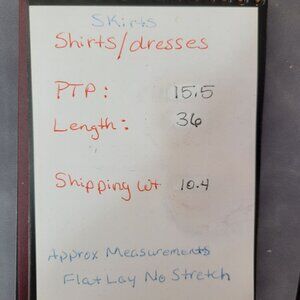 Skirts
Shirts/dresses
PTP: 15.5
Length: 36
Shipping wt 10.4
Approx Measurements
Flat Lay No Stretch